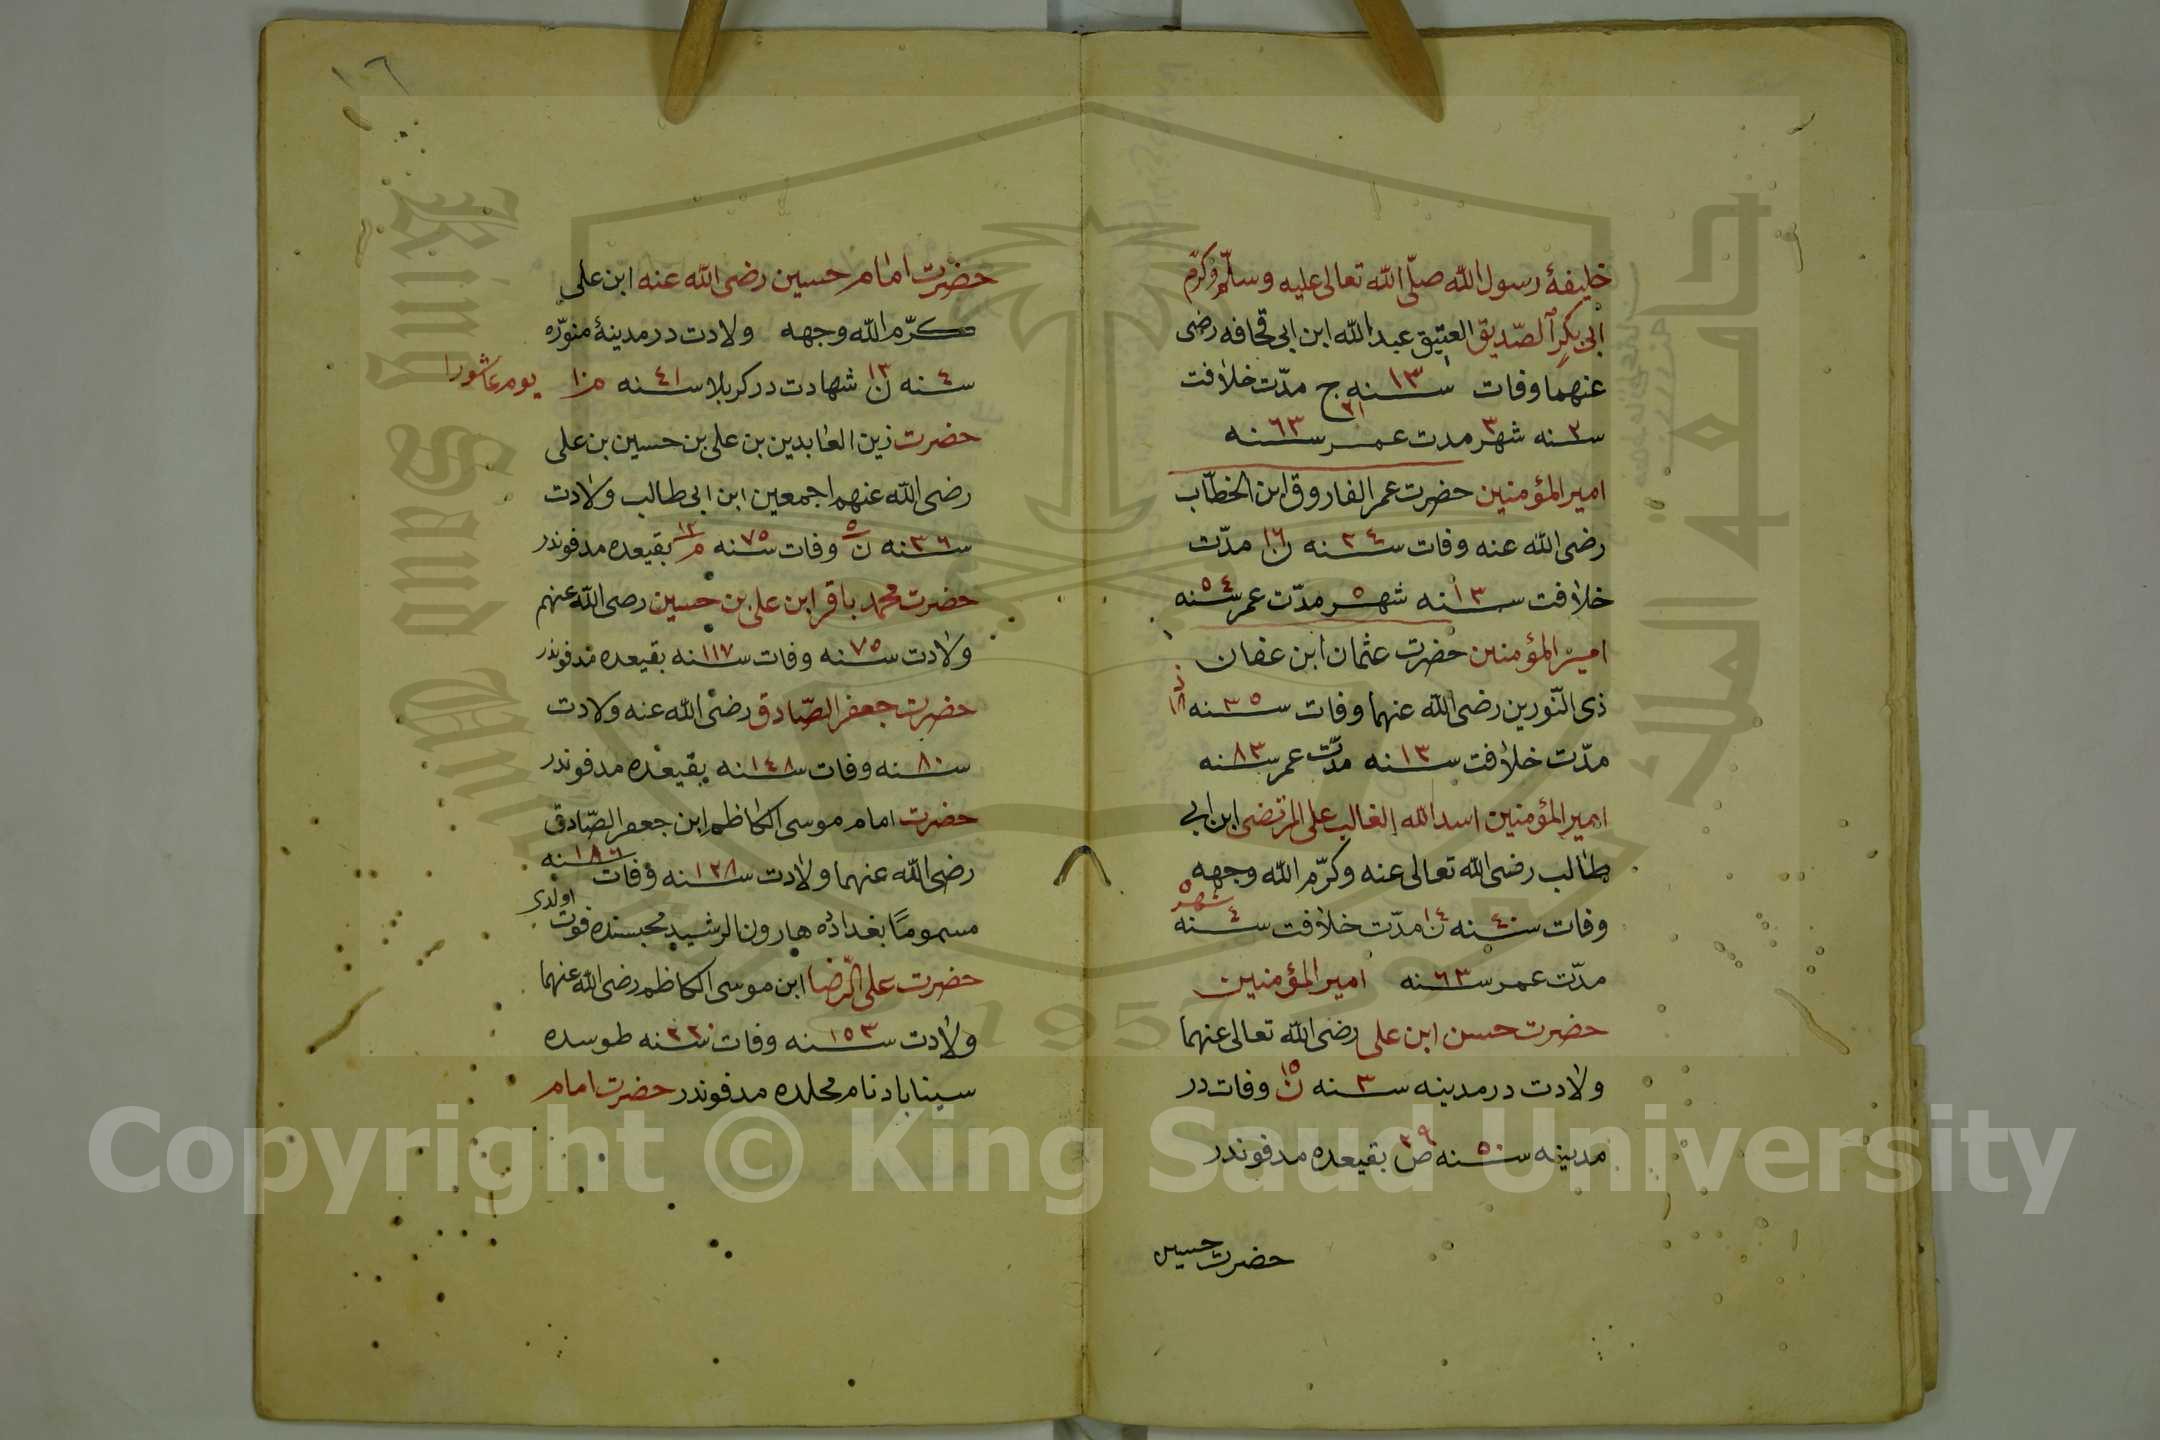 خليفۀ رسول الله صلّى الله تعالى عليه وسلّم وكرّم
ابى بكر الصّديق العتيق عبد الله ابن ابى قحافه رضى
عنهما وفات سنه ١٣ ج ٢١ مدّت خلافت
سنه ٢ شهر ٣ مدت عمر سنه ٦٣
امير المؤمنين حضرت عمر الفاروق ابن الخطّاب
رضى الله عنه وفات سنه ٢٤ ن ١٦ مدّت
خلافت سنه ١٣ شهر ٥ مدّت عمر سنه ٥٤
امير المؤمنين حضرت عثمان ابن عفان
ذى النّورين رضى الله عنهما وفات سنه ٣٥ ذ ١٨
مدّت خلافت سنه ١٣ مدّت عمر سنه ٨٣
امير المؤمنين اسد الله الغالب على المرتضى ابن ابى
طالب رضى الله تعالى عنه وكرّم الله وجهه
وفات سنه ٤٠ ن ١٤ مدّت خلافت سنه ٤ شهر ٥
مدّت عمر سنه ٦٣ امير المؤمنين
حضرت حسن ابن على رضى الله تعالى عنهما
ولادت در مدينه سنه ٣ ن ١٥ وفات در
مدينه سنه ٥٠ ص ٢٩ بقيعده مدفوندر
حضرت حسين
١٦
حضرت امام حسين رضى الله عنه ابن على
كرّم الله وجهه ولادت در مدينۀ منوّره
سنه ٤ ن ١٣ شهادت در كربلا سنه ٤١ م ١٠ يوم عاشورا
حضرت زين العابدين بن على بن حسين بن على
رضى الله عنهم اجمعين ابن ابى طالب ولادت
سنه ٣٦ ن ٥ وفات سنه ٧٥ م ١٢ بقيعده مدفوندر
حضرت محمد باقر ابن على بن حسين رضى الله عنهم
ولادت سنه ٧٥ وفات سنه ١١٧ بقيعده مدفوندر
حضرت جعفر الصّادق رضى الله عنه ولادت
سنه ٨٠ وفات سنه ١٤٨ بقيعده مدفوندر
حضرت امام موسى الكاظم ابن جعفر الصّادق
رضى الله عنهما ولادت سنه ١٢٨ وفات سنه ١٨٦
مسموماً بغداده هارون الرشيد محبسنده فوت اولدى
حضرت على الرّضا ابن موسى الكاظم رضى الله عنهما
ولادت سنه ١٥٣ وفات سنه ٢٢٠ طوسده
سيناباد نام محلده مدفوندر حضرت امام
جامعة الملك سعود
King Saud University
1957
Copyright © King Saud University